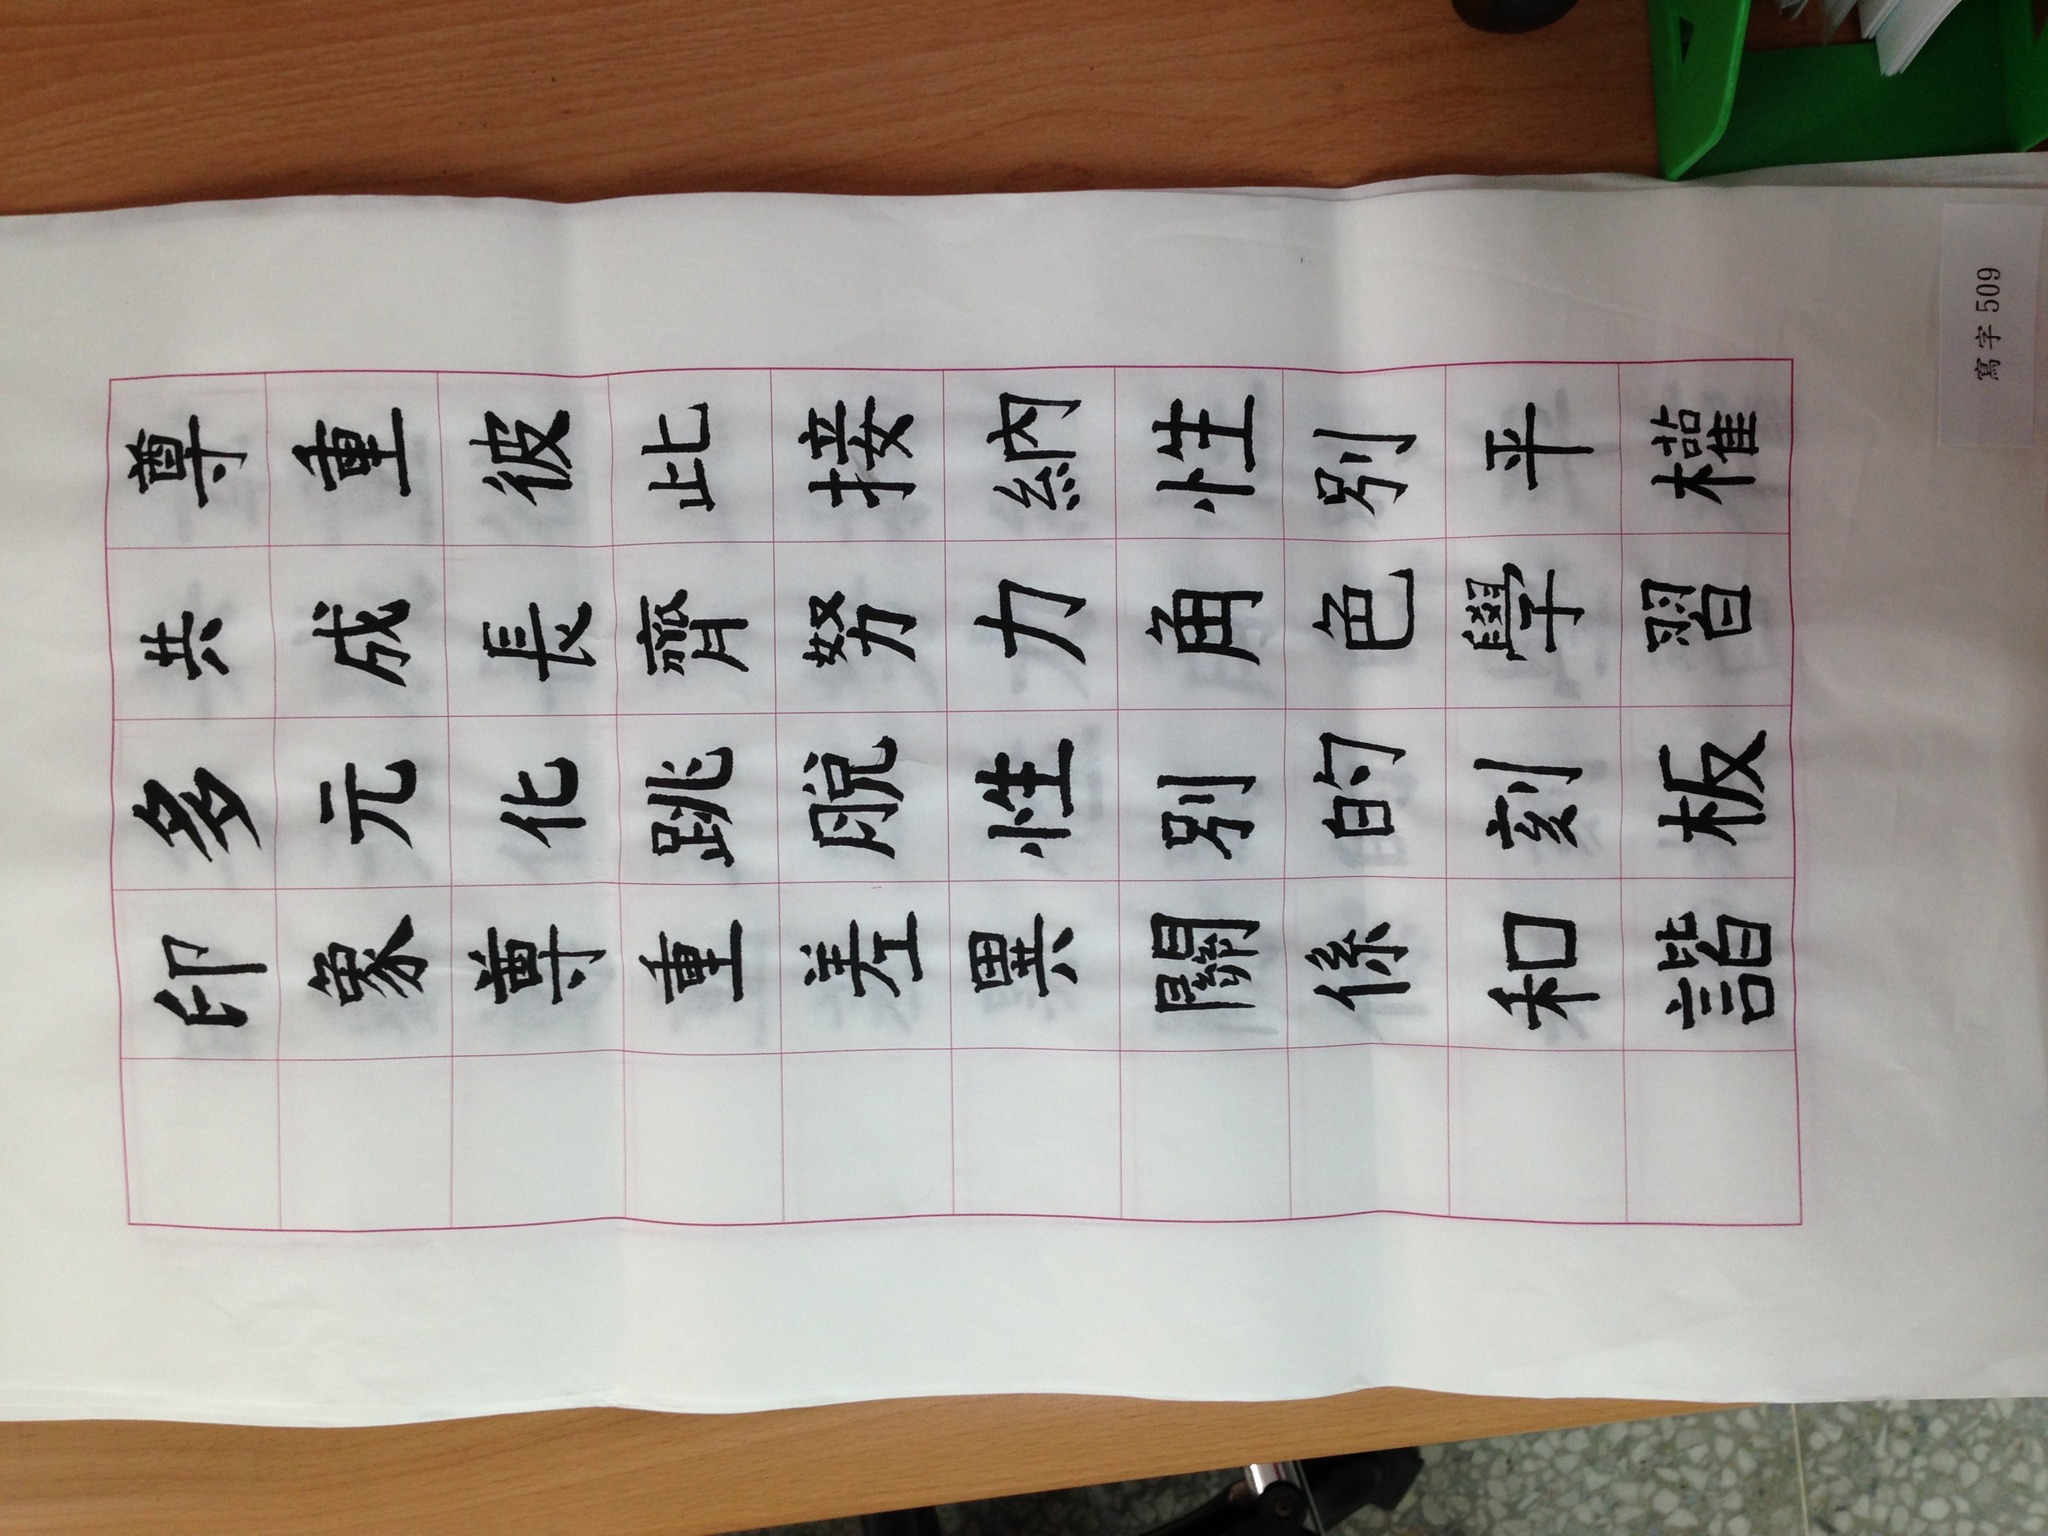 尊重彼此接納性別平權
共成長齊努力角色學習
多元化跳脫性別的刻板
印象尊重差異關係和諧
寫字509